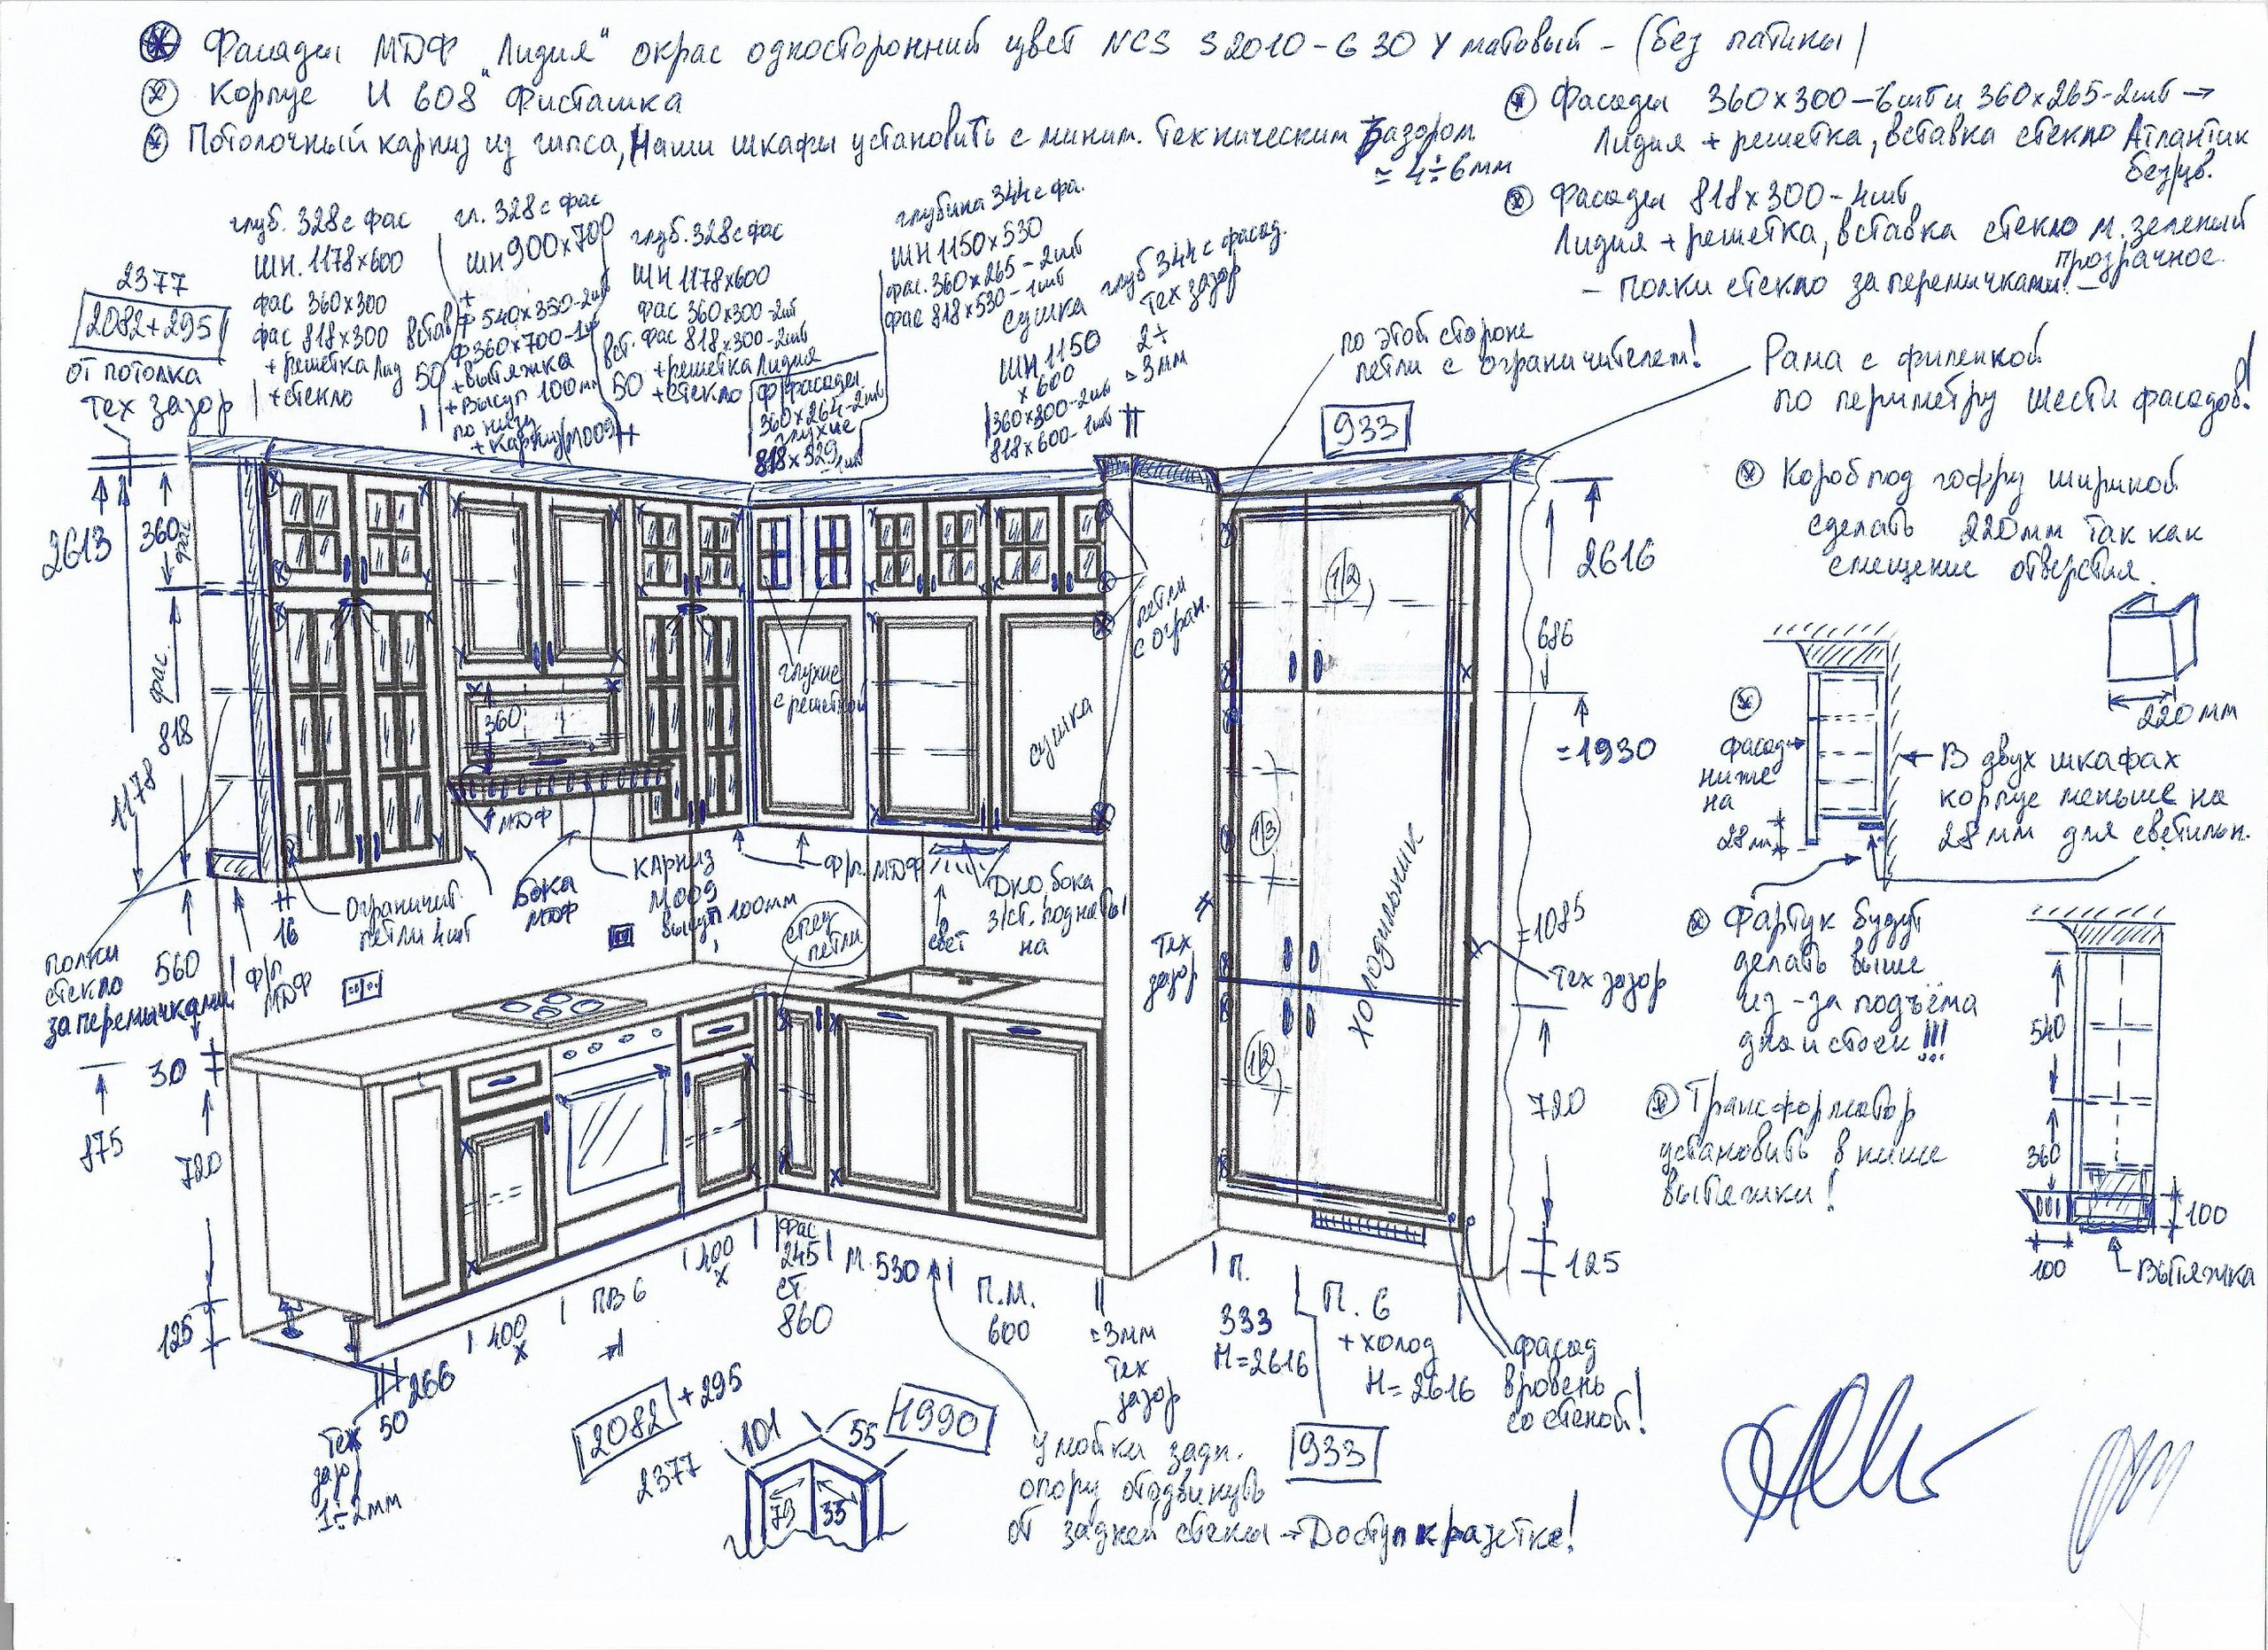 Фасады МДФ "Лидия" окрас односторонний цвет NCS S2010-G30Y матовый - (без патины)
Корпус И 608 Фисташка
Потолочный карниз из гипса, Наши шкафы установить с миним. техническим Зазором
≈ 4÷6мм
Фасады 360х300-6шт и 360х265-2шт →
Лидия + решетка, вставка стекло Атлантик
безцв.
Фасады 818х300-4шт
Лидия + решетка, вставка стекло м. зеленый
прозрачное.
- Полки стекло за перемычками! -
2377
2082+295
от потолка
тех зазор
глуб. 328 с фас
ШН. 1178х600
фас 360х300
фас 818х300
+ решетка Лид
+ стекло
встав
50
гл. 328 с фас
ШН 900х700
+
Ф 540х350-2шт
Ф 360х700-1шт
+ вытяжка
+ Высуп 100мм
по низу
+ Карниз М009
глуб. 328 с фас
ШН 1178х600
фас 360х300-2шт
фас 818х300-2шт
+ решетка Лидия
+ стекло
вст.
50
глубина 344 с фа.
ШН 1150х530
фас. 360х265-2шт
фас 818х530-1шт
ф/фасады
360х264-2шт
глухие
818х529 1шт
сушка
глуб 344 с фасад.
ШН 1150
х 600
360х300-2шт
818х600-1шт
тех зазор
2÷
≈3мм
по этой стороне
петли с ограничителем!
Рама с филенкой
по периметру шести фасадов!
933
Короб под гофру шириной
сделать 220мм так как
смещение отверстия.
220мм
2613
360
фас
фас.
818
1178
2616
686
=1930
1/2
1/3
1/2
холодильник
≈1085
тех зазор
720
125
петли
с огран.
глухие
с решеткой
сушка
360
МДФ
фасад
ниже
на
28мм
В двух шкафах
корпус меньше на
28мм для светильн.
Фартук будут
делать выше
из-за подъёма
дна и стоек!!!
Трансформатор
установить в нише
вытяжки!
540
360
100
100
Вытяжка
полки
стекло
за перемычками!
560
ф/п
МДФ
16
Ограничит.
петли 4шт
Бока
МДФ
Карниз
М009
высуп 100мм
ф/п. МДФ
свет
Дно, бока
з/ст. подняты
на
спец
петли
Тех
зазор
30
875
720
125
266
50
Тех
зазор
1÷2мм
400
ПВ 6
400
фас
245
ст
860
М. 530
П.М.
600
≈3мм
тех
зазор
П.
333
Н=2616
П. 6
+ холод
Н=2616
фасад
вровень
со стеной!
933
2082 +295
2377
101
55
1990
73
33
У мойки задн.
опору отодвинуть
от задней стены → Доступ к разетке!